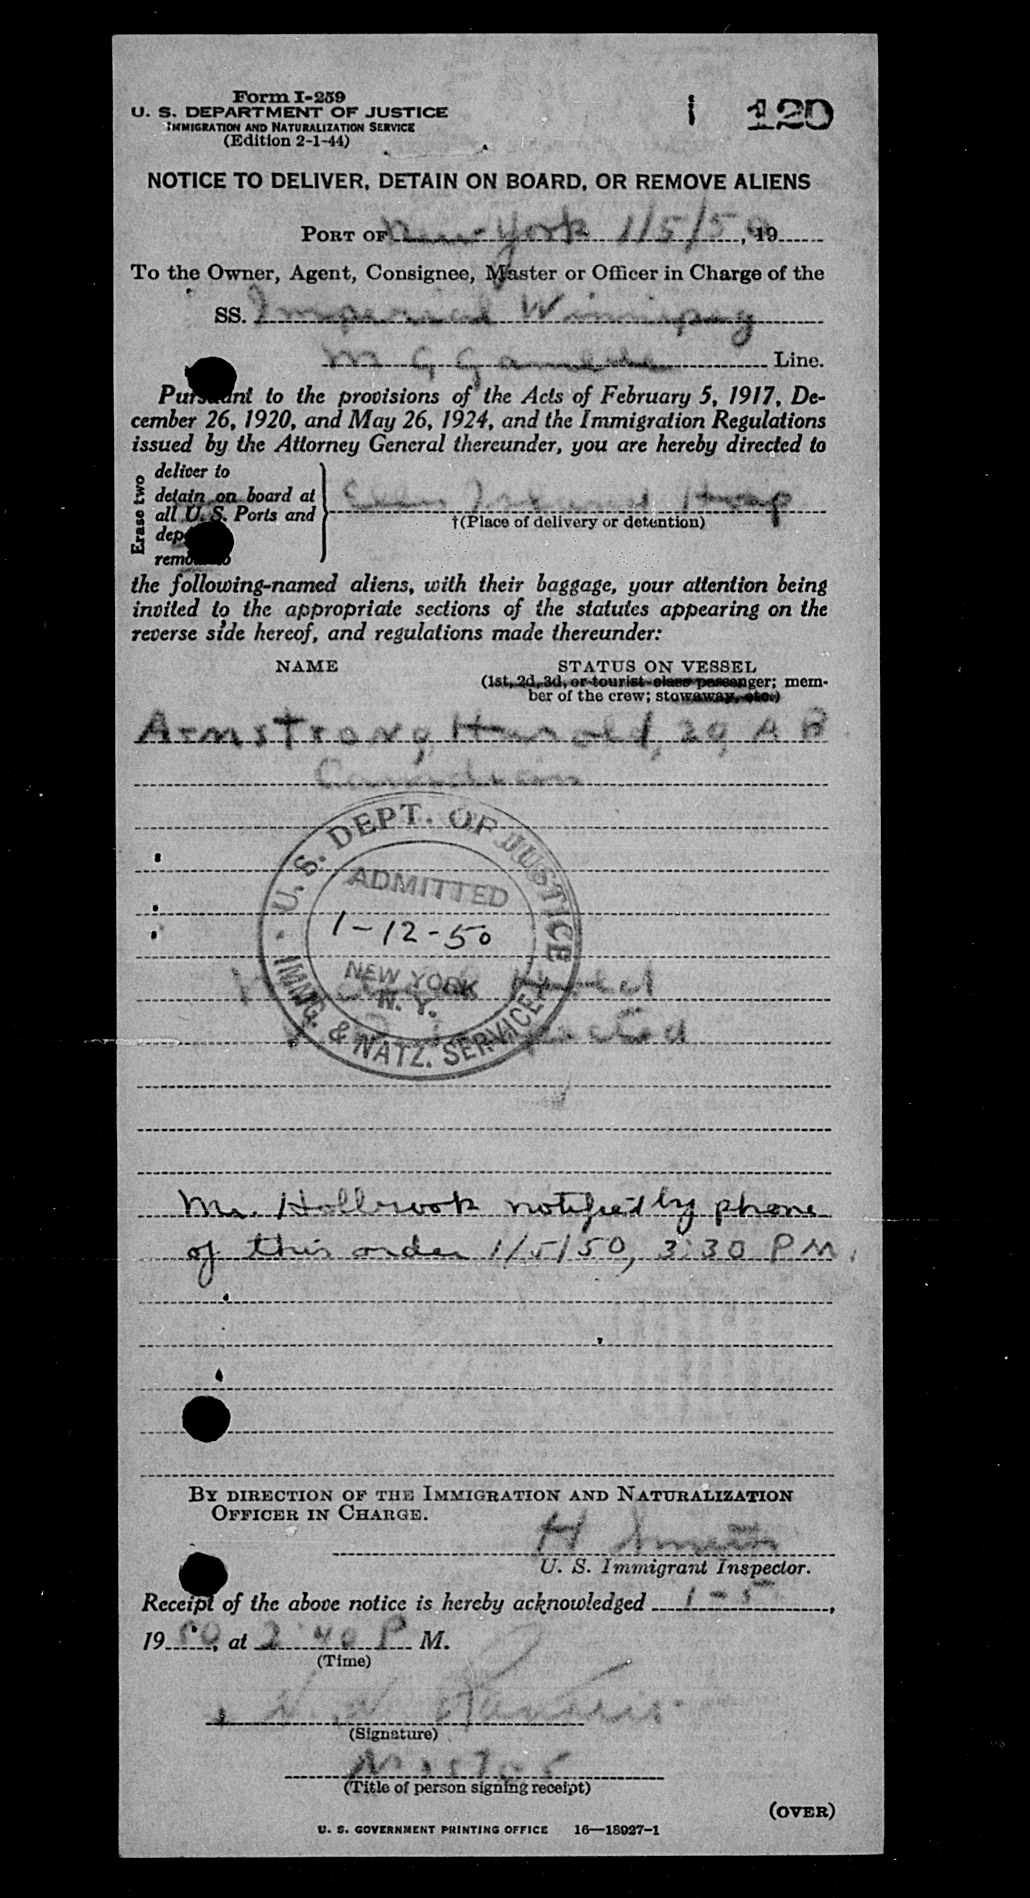 Form I-259
U. S. DEPARTMENT OF JUSTICE
IMMIGRATION AND NATURALIZATION SERVICE
(Edition 2-1-44)
1 120
NOTICE TO DELIVER, DETAIN ON BOARD, OR REMOVE ALIENS
PORT OF New York 1/5/50, 19
To the Owner, Agent, Consignee, Master or Officer in Charge of the
SS. Imperial Winnipeg
M G Gamble Line.
Pursuant to the provisions of the Acts of February 5, 1917, De-
cember 26, 1920, and May 26, 1924, and the Immigration Regulations
issued by the Attorney General thereunder, you are hereby directed to
Erase two
deliver to
detain on board at
all U. S. Ports and
remove to
Ellis Island Hosp
†(Place of delivery or detention)
the following-named aliens, with their baggage, your attention being
invited to the appropriate sections of the statutes appearing on the
reverse side hereof, and regulations made thereunder:
NAME STATUS ON VESSEL
(1st, 2d, 3d, or tourist class passenger; mem-
ber of the crew; stowaway, etc.)
Armstrong, Harold, 29, A B
Canadian
U. S. DEPT. OF JUSTICE
ADMITTED
1-12-50
NEW YORK
N. Y.
IMMG. & NATZ. SERVICE
Mr. Hollbrook notified by phone
of this order 1/5/50, 3:30 PM.
BY DIRECTION OF THE IMMIGRATION AND NATURALIZATION
OFFICER IN CHARGE.
H
U. S. Immigrant Inspector.
Receipt of the above notice is hereby acknowledged 1-5,
19 50, at 2:40 P M.
(Time)
(Signature)
Master
(Title of person signing receipt)
(OVER)
U. S. GOVERNMENT PRINTING OFFICE 16—18027-1